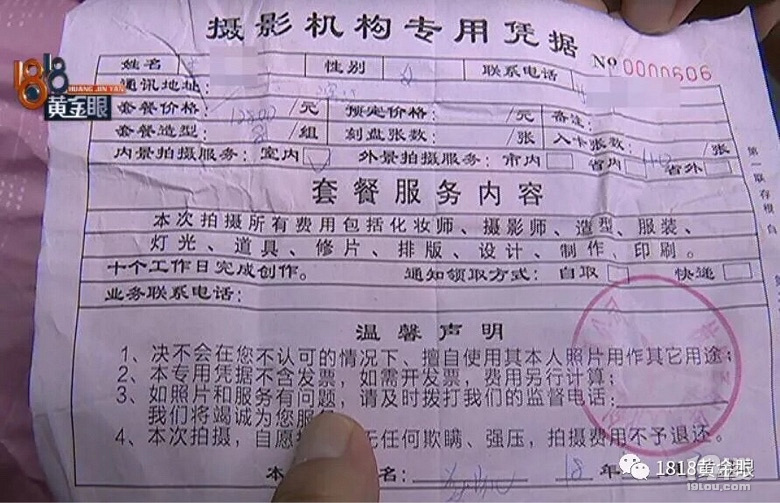 摄影机构专用凭据
No 0000606
1818
HUANG JIN YAN
黄金眼
姓名 性别 女 联系电话
通讯地址:
套餐价格: /元 预定价格: /元 备注:
套餐造型: /组 刻盘张数: /张 入卡张数: /张
内景拍摄服务: 室内 外景拍摄服务: 市内 省内 省外
第一联存根
套餐服务内容
本次拍摄所有费用包括化妆师、摄影师、造型、服装、
灯光、道具、修片、排版、设计、制作、印刷。
十个工作日完成创作。 通知领取方式: 自取 快递
业务联系电话:
温馨声明
1、决不会在您不认可的情况下、擅自使用其本人照片用作其它用途;
2、本专用凭据不含发票,如需开发票,费用另行计算;
3、如照片和服务有问题,请及时拨打我们的监督电话:
我们将竭诚为您服
4、本次拍摄,自愿 无任何欺瞒、强压,拍摄费用不予退还。
本 名: 18 年
1818黄金眼
19lou.com